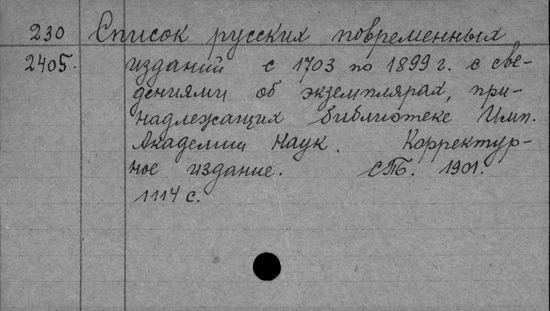 230 Список русских повременных
2405. изданий с 1703 по 1899 г. с све-
дениями об экземплярах, при-
надлежащих библиотеке Имп.
Академии Наук. Корректур-
ное издание. СПб. 1901.
1114 с.